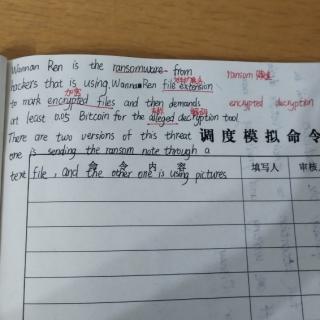 Wannan Ren is the ransomware from
hackers that is using.WannanRen file extension
to mark encrypted files and then demands
at least 0.05 Bitcoin for the alleged decryption tool.
There are two versions of this threat
one is sending the ransom note through a
text file, and the other one is using pictures
ransom
加密
encrypted decryption
调度模拟命令
命令内容
填写人
审核